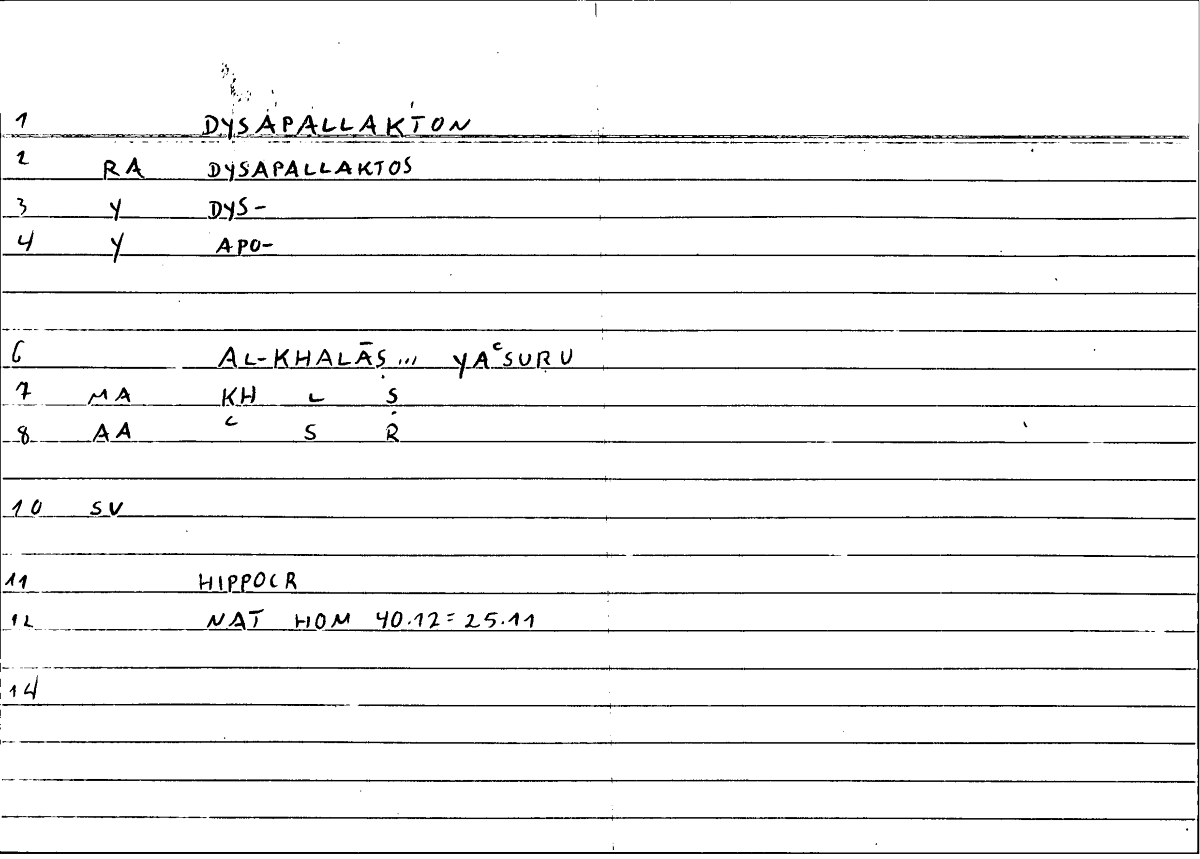 1 DYSAPALLAKTON
2 RA DYSAPALLAKTOS
3 Y DYS-
4 Y APO-
6 AL-KHALĀṢ... YAʿSURU
7 MA KH L Ṣ
8 AA ʿ S R
10 SV
11 HIPPOCR
12 NAT HOM 40.12=25.11
14